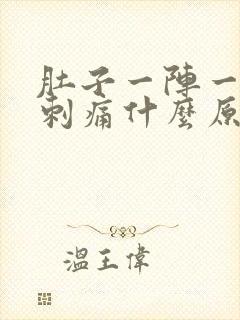 肚子一陣一
刺痛什麼原
溫王偉